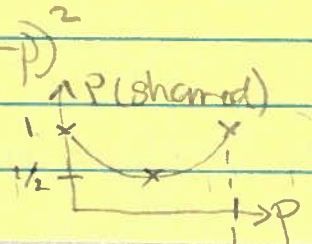 -p)²
P(shared)
1
1/2
p
1